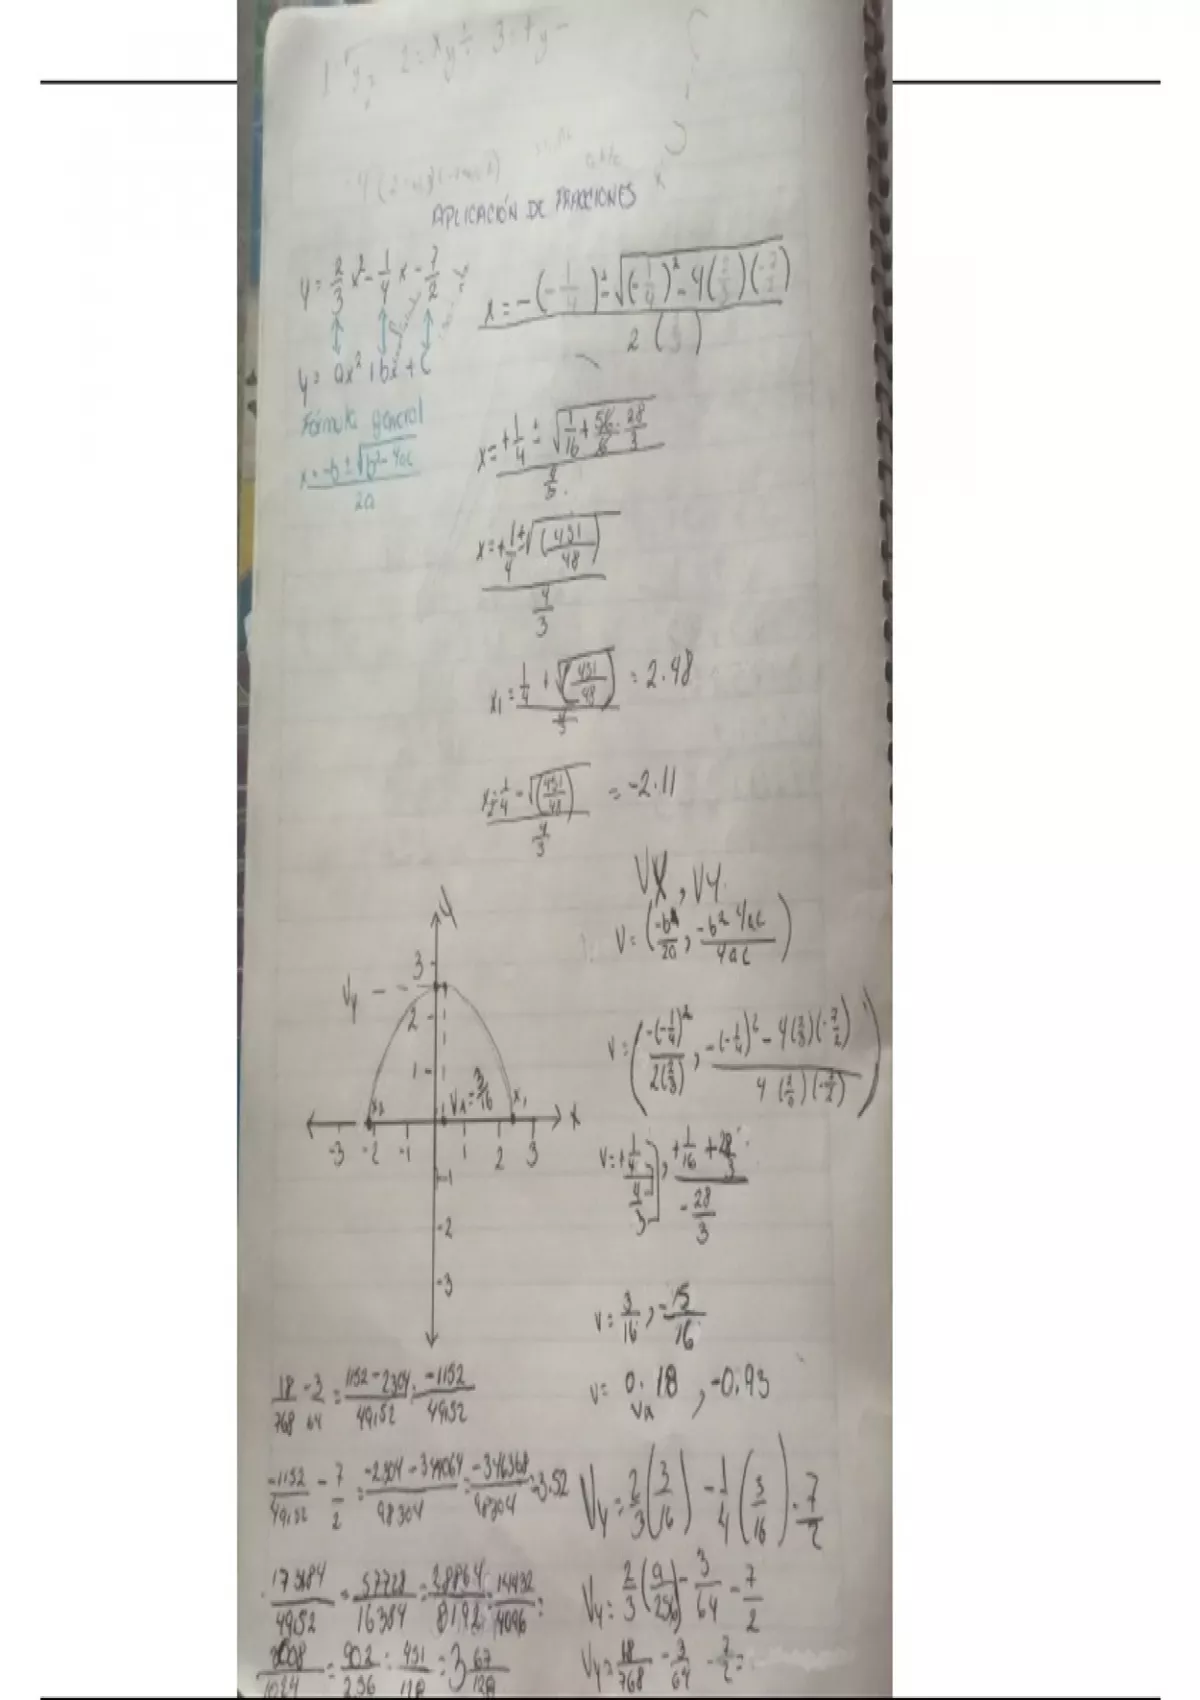 APLICACIÓN DE FRACCIONES
y = 2/3 x² - 1/4 x - 7/2
y = ax² + bx + c
Fórmula general
x = -b ± √b² - 4ac / 2a
x = -(-1/4) ± √(-1/4)² - 4(2/3)(-7/2) / 2( )
x = +1/4 ± √1/16 + 56/6 = 28/3 / 4/3
x = +1/4 ± √(451/48) / 4/3
x₁ = 1/4 + √(451/48) / 4/3 = 2.48
x₂ = 1/4 - √(451/48) / 4/3 = -2.11
VX, VY
V = (-b/2a, -b² 4ac / 4ac)
V = (-(-1/4)² / 2(2/3), -(-1/4)² - 4(2/3)(-7/2) / 4(2/3)(-7/2))
V = +1/4 / 4/3, +1/16 + 28/3 / -28/3
V = 3/16, -15/16
V = 0.18, -0.93
Vx
y
3
Vy
2
1
x₂
Vx = 3/16
x₁
x
-3 -2 -1 1 2 3
-1
-2
-3
18/768 - 3/64 = 1152 - 2304 / 49152 = -1152/49152
-1152/49152 - 7/2 = -2304 - 344064 / 98304 = -346368/98304 = 3.52
173184/49152 = 57728/16384 = 28864/8192 = 14432/4096 =
/1024 = 902/256 = 451/128 = 3 67/128
Vy = 2/3 (3/16) - 1/4 (3/16) - 7/2
Vy = 2/3 (9/256) - 3/64 - 7/2
Vy = 18/768 - 3/64 - 7/2 =